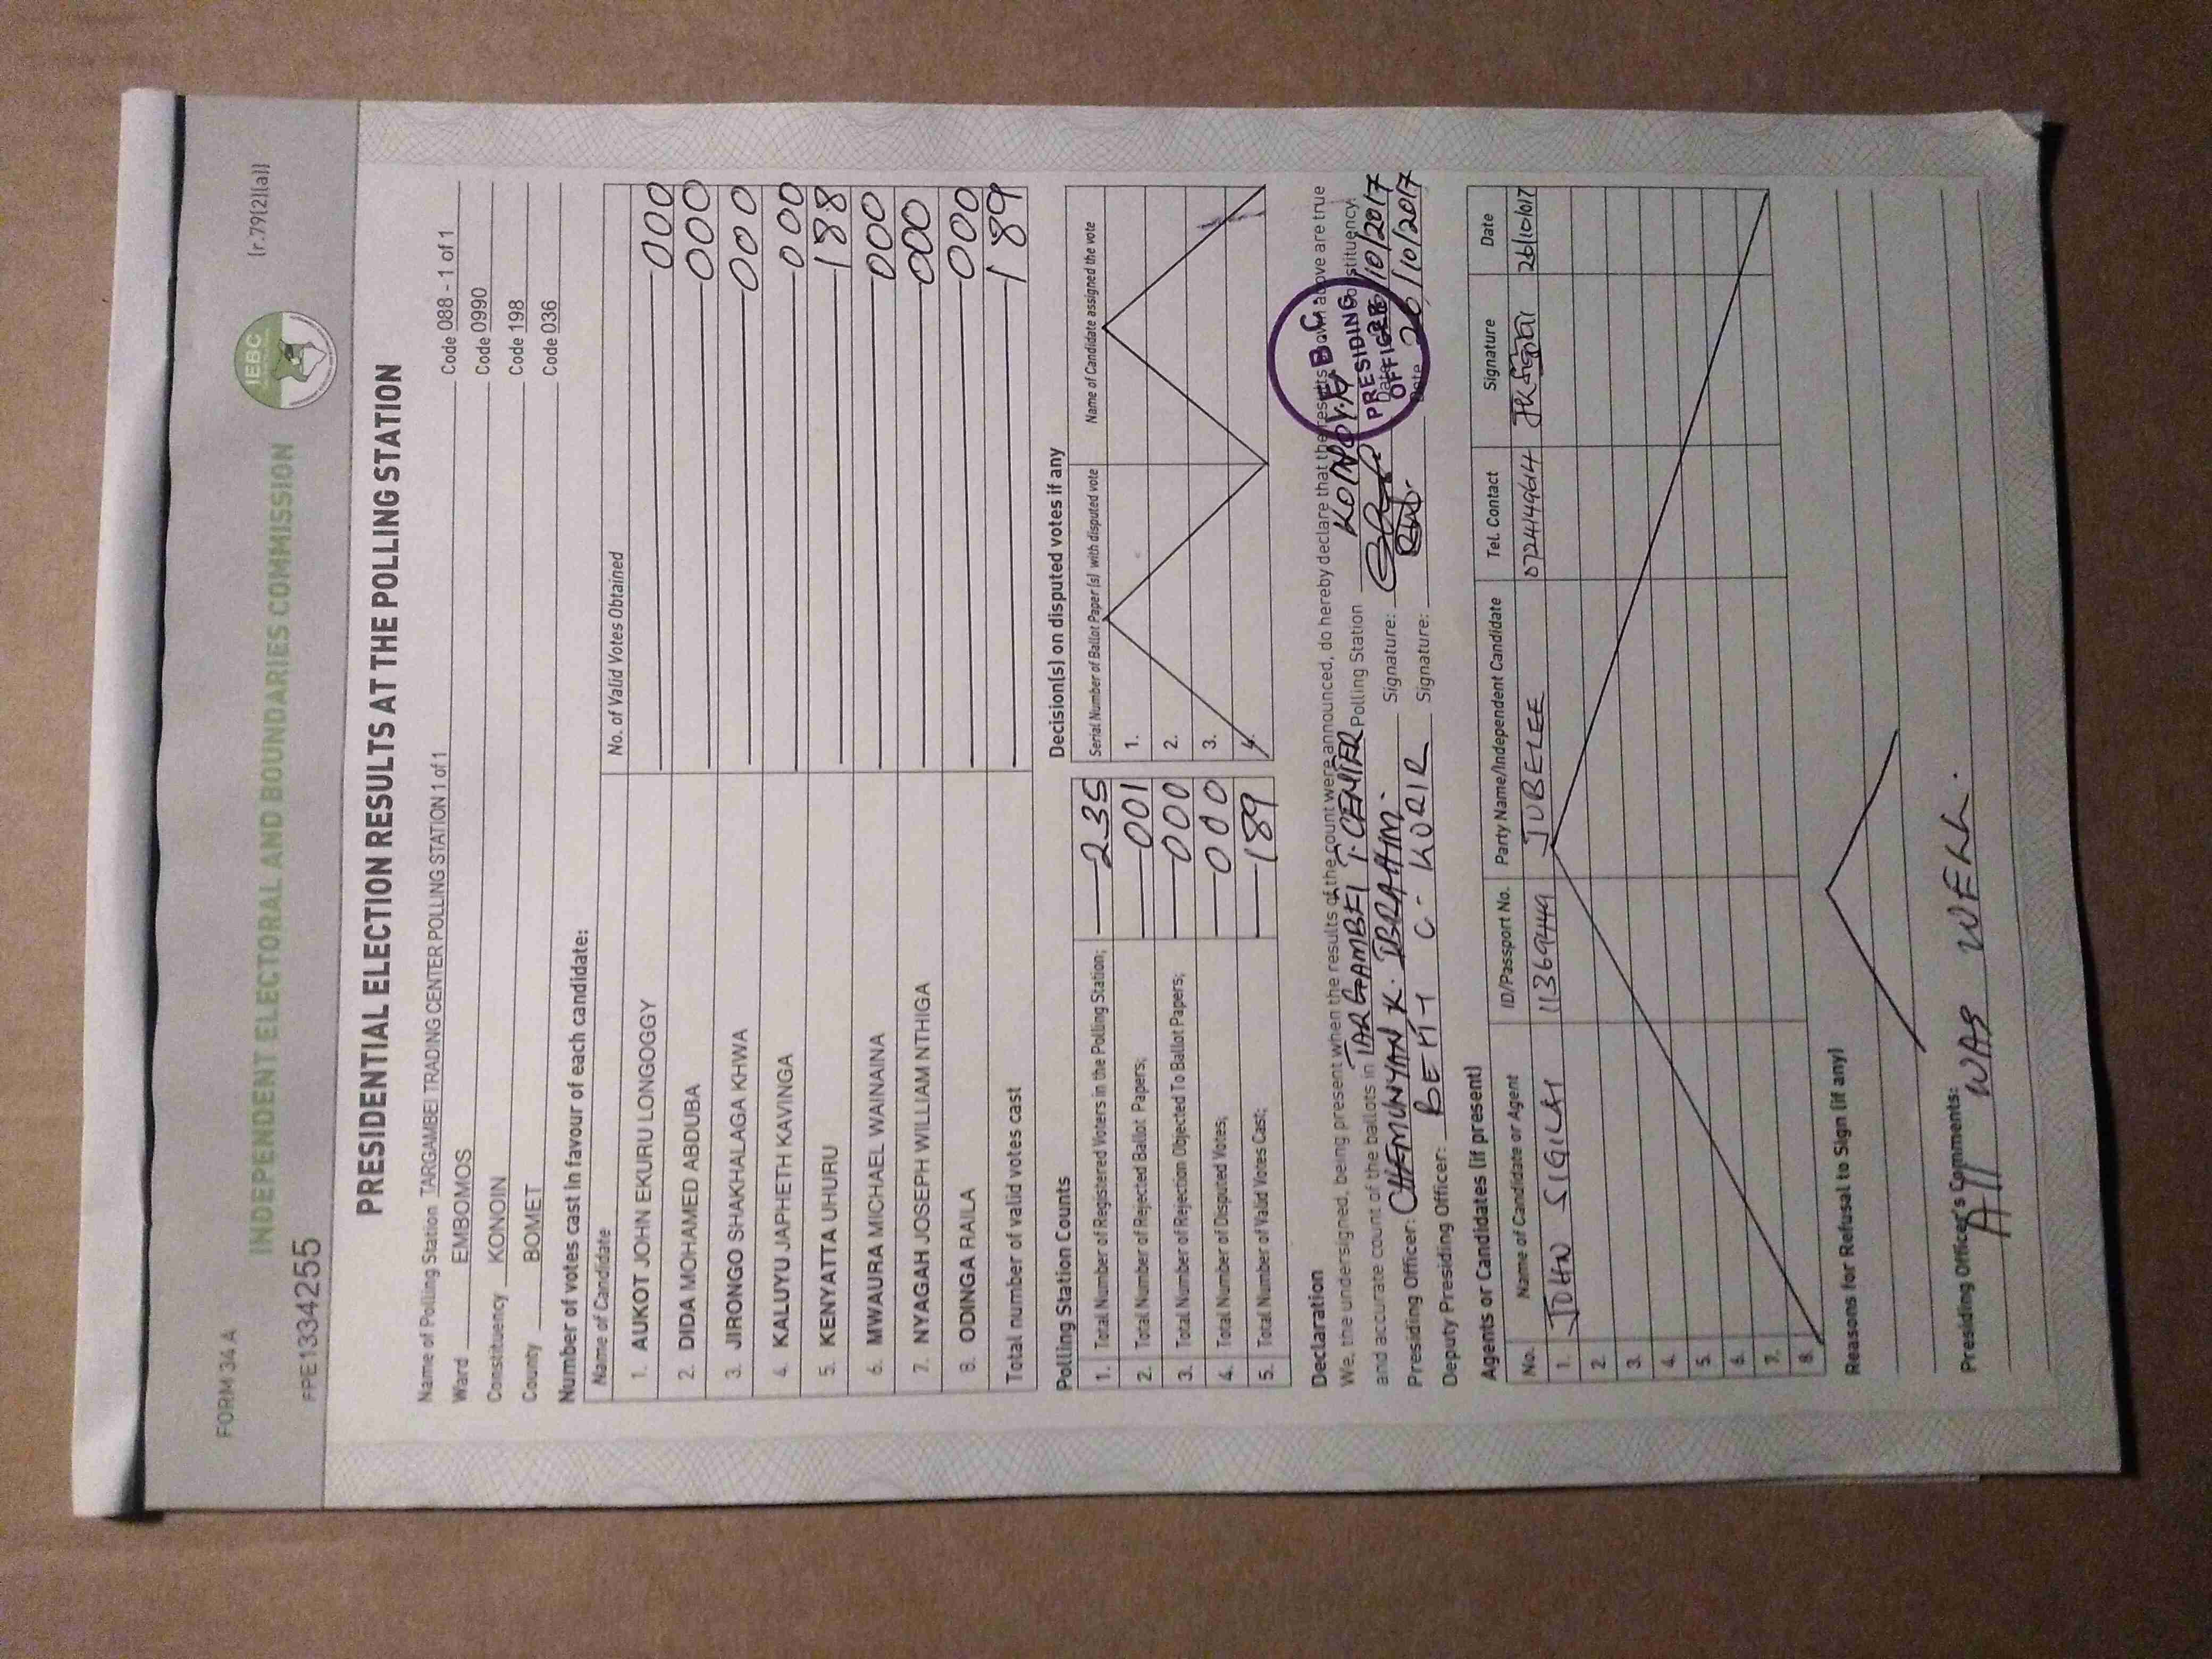 FORM 34 A
(r.79(2)(a))
INDEPENDENT ELECTORAL AND BOUNDARIES COMMISSION
IEBC
PPE1334255
PRESIDENTIAL ELECTION RESULTS AT THE POLLING STATION
Name of Polling Station TARGAMBEI TRADING CENTER POLLING STATION 1 of 1 Code 088 - 1 of 1
Ward EMBOMOS Code 0990
Constituency KONOIN Code 198
County BOMET Code 036
Number of votes cast in favour of each candidate:
Name of Candidate No. of Valid Votes Obtained
1. AUKOT JOHN EKURU LONGOGGY 000
2. DIDA MOHAMED ABDUBA 000
3. JIRONGO SHAKHALAGA KHWA 000
4. KALUYU JAPHETH KAVINGA 000
5. KENYATTA UHURU 188
6. MWAURA MICHAEL WAINAINA 000
7. NYAGAH JOSEPH WILLIAM NTHIGA 000
8. ODINGA RAILA 000
Total number of valid votes cast 189
Polling Station Counts
1. Total Number of Registered Voters in the Polling Station; 235
2. Total Number of Rejected Ballot Papers; 001
3. Total Number of Rejection Objected To Ballot Papers; 000
4. Total Number of Disputed Votes; 000
5. Total Number of Valid Votes Cast; 189
Decision(s) on disputed votes if any
Serial Number of Ballot Paper(s) with disputed vote Name of Candidate assigned the vote
1.
2.
3.
4.
Declaration
We, the undersigned, being present when the results of the count were announced, do hereby declare that the results shown above are true
and accurate count of the ballots in TARGAMBEI T. CENTER Polling Station KONOYIN Constituency.
Presiding Officer: CHEMUNYAN K. IBRAHIM. Signature: Date 26/10/2017
Deputy Presiding Officer: BETTY C. KORIR Signature: Date 26/10/2017
I.E.B.C.
PRESIDING
OFFICER
Agents or Candidates (if present)
No. Name of Candidate or Agent ID/Passport No. Party Name/Independent Candidate Tel. Contact Signature Date
1. JOHN SIGILAI 11369449 JUBELEE 0724149614 26/10/017
2.
3.
4.
5.
6.
7.
8.
Reasons for Refusal to Sign (if any)
Presiding Officer's Comments:
All WAS WELL.